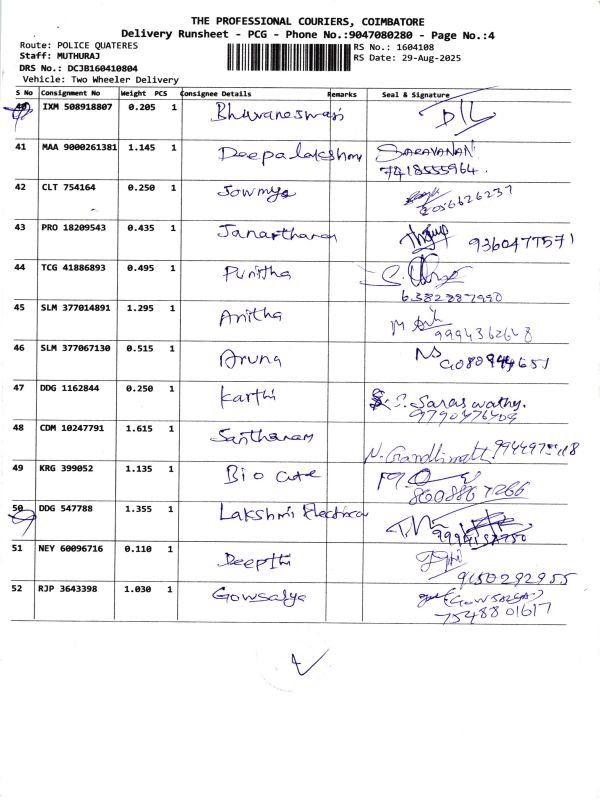 THE PROFESSIONAL COURIERS, COIMBATORE
Delivery Runsheet - PCG - Phone No.:9047080280 - Page No.:4
Route: POLICE QUATERES RS No.: 1604108
Staff: MUTHURAJ RS Date: 29-Aug-2025
DRS No.: DCJB160410804
Vehicle: Two Wheeler Delivery
S No Consignment No Weight PCS Consignee Details Remarks Seal & Signature
40 IXM 508918807 0.205 1 Bhuvaneswari
41 MAA 9000261381 1.145 1 Deepalakshmi SARAVANAN
7418555964.
42 CLT 754164 0.250 1 Sowmya
43 PRO 18209543 0.435 1 Janarthanan 9360477571
44 TCG 41886893 0.495 1 Punitha
6382287990
45 SLM 377014891 1.295 1 Anitha
9994362648
46 SLM 377067130 0.515 1 Aruna 9080944651
47 DDG 1162844 0.250 1 Karthi S. Saraswathy.
9790476409
48 CDM 10247791 1.615 1 Santhanam N. Gandhimathi
49 KRG 399052 1.135 1 Bio Cute
8608867266
50 DDG 547788 1.355 1 Lakshmi Electrical
51 NEY 60096716 0.110 1 Deepthi
9150292955
52 RJP 3643398 1.030 1 Gowsalya
7548801617